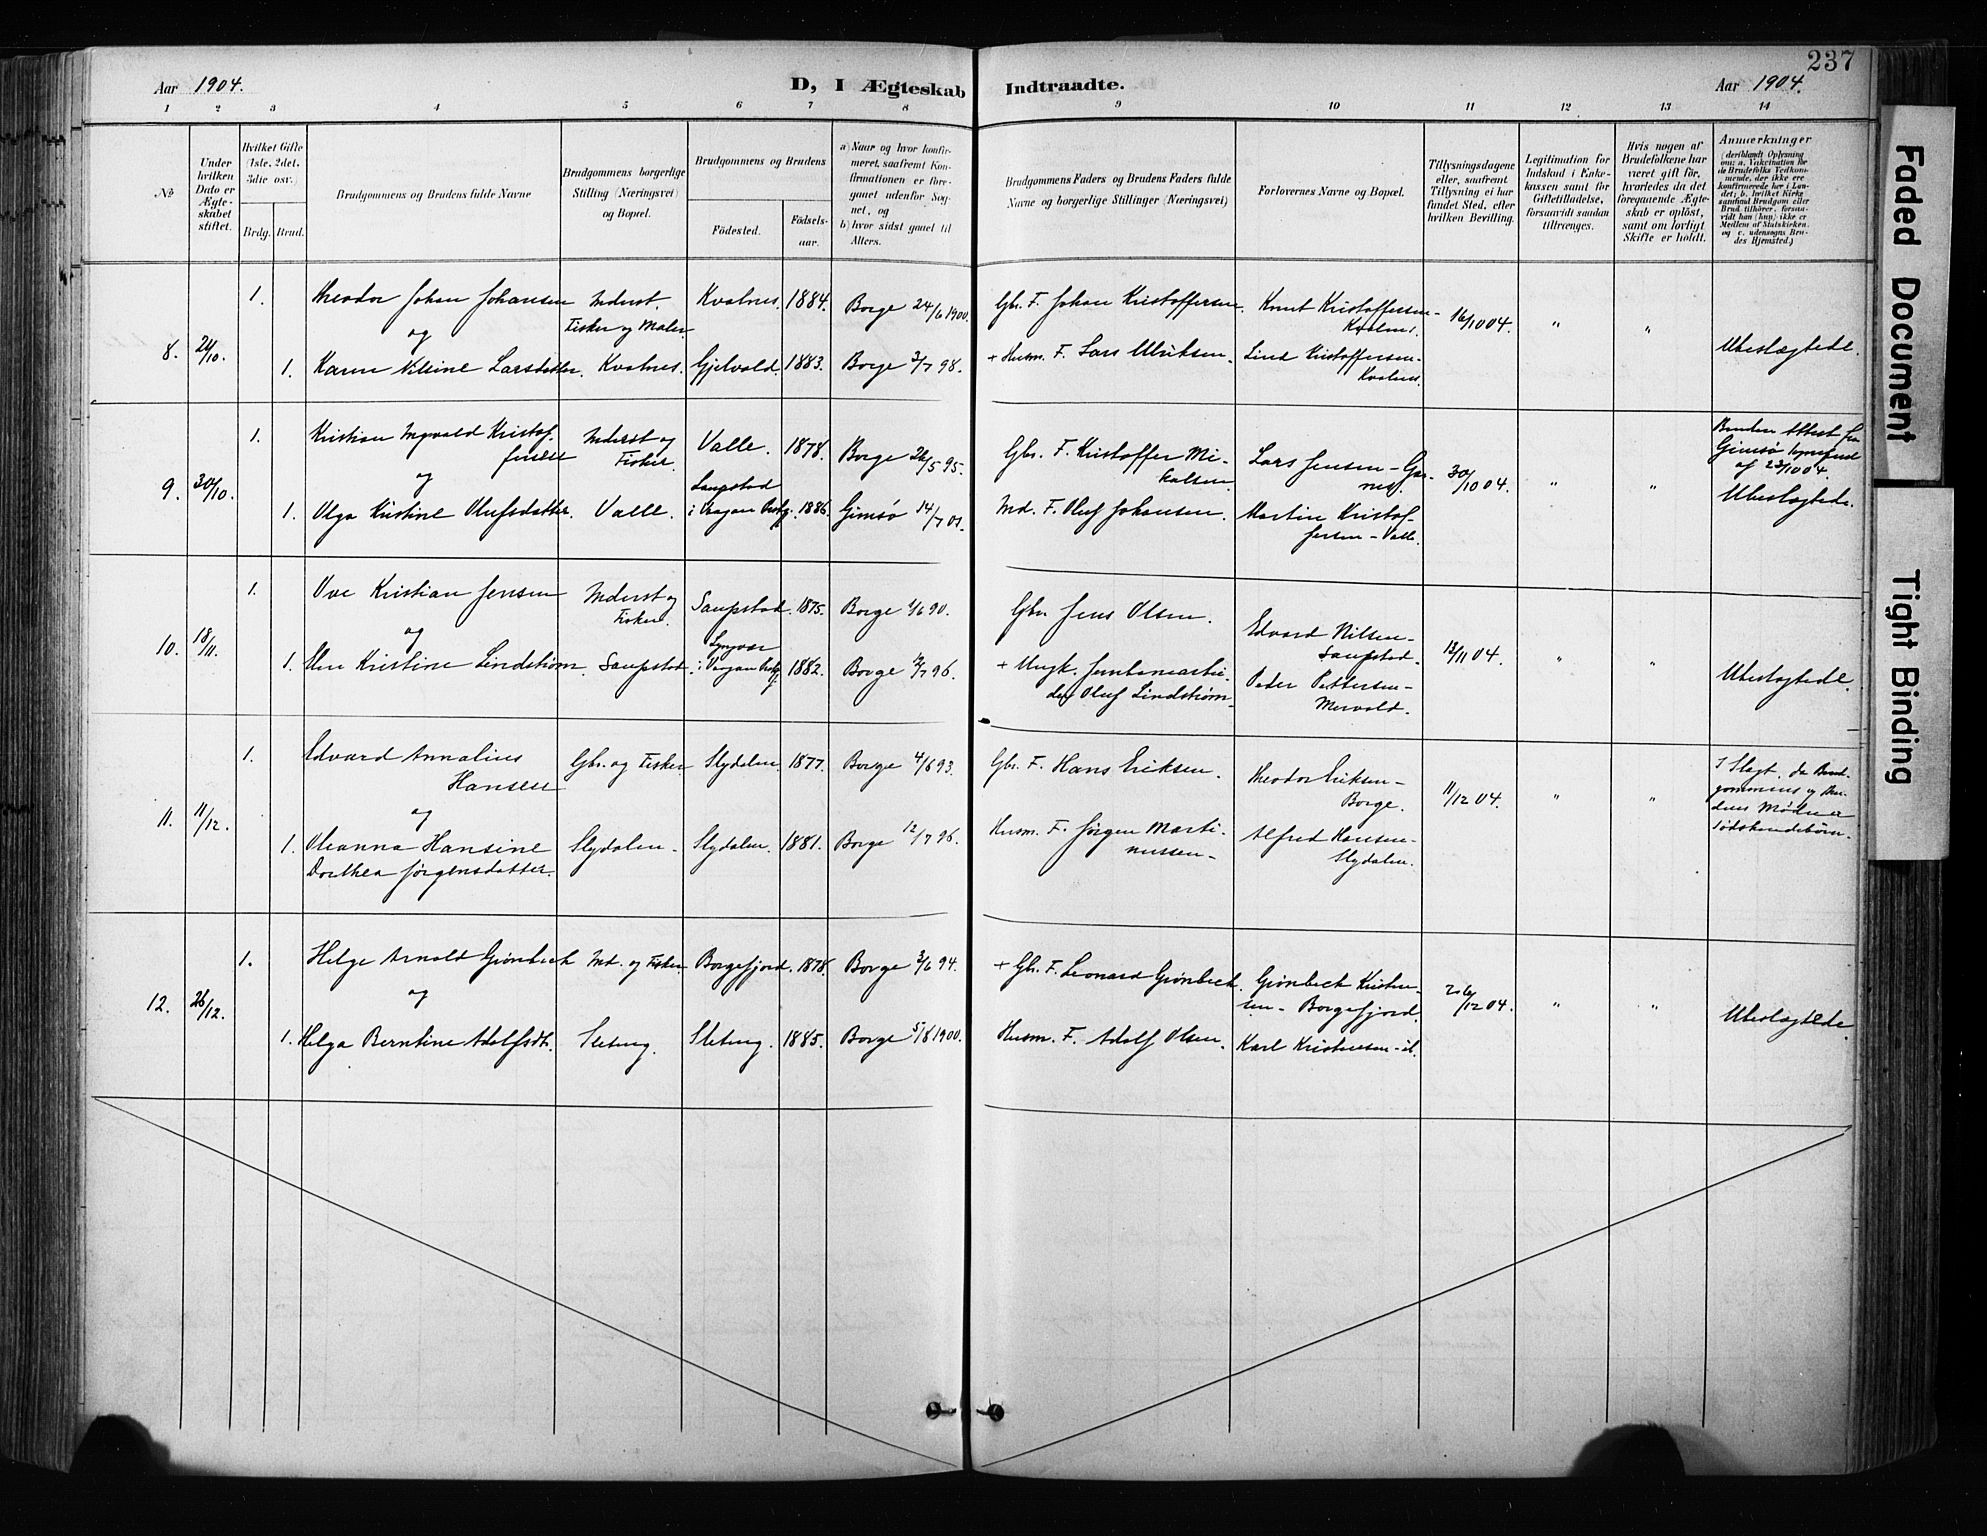 237
Aar 1904.
D, I Ægteskab Indtraadte.
Aar 1904.
1 2 3 4 5 6 7 8 9 10 11 12 13 14
No
Under hvilken Dato er Ægteskabet stiftet.
Hvilket Gifte (1ste, 2det, 3die osv.)
Brdg. Brud.
Brudgommens og Brudens fulde Navne
Brudgommens borgerlige Stilling (Næringsvei) og Bopæl.
Brudgommens og Brudens
Födested.
Födselsaar.
a) Naar og hvor konfirmeret, saafremt Konfirmationen er foregaaet udenfor Sognet, og
b) hvor sidst gaaet til Alters.
Brudgommens Faders og Brudens Faders fulde Navne og borgerlige Stillinger (Næringsvei)
Forlovernes Navne og Bopæl.
Tillysningsdagene eller, saafremt Tillysning ei har fundet Sted, efter hvilken Bevilling.
Legitimation for Indskud i Enkekassen samt for Giftetilladelse, forsaavidt saadan tiltrænges.
Hvis nogen af Brudefolkene har været gift för, hvorledes da det foregaaende Ægteskab er oplöst, samt om lovligt Skifte er holdt.
Anmærkninger
(deriblandt Oplysning om: a. Vakcination for de Brudefolks Vedkommende, der ikke ere konfirmerede her i Landet; b. hvilket Kirkesamfund Brudgom eller Brud tilhörer, forsaavidt han (hun) ikke er Medlem af Statskirken, og c. udensogns Brudes Hjemsted.)
8. 24/10.
1. Theodor Johan Johansen Inderst. Fisker og Maler Kvalnes. 1884. Borge 24/6 1900. Gbr. F. Johan Kristoffersen Knut Kristoffersen - Kvalnes. 16/10 04. " "
og
1. Karen Nilsine Larsdatter. Kvalnes. Gjelvold. 1883. Borge 3/7 98. + Husm. F. Lars Ulriksen. Kristoffersen - Kvalnes. Ubeslægtede.
9. 30/10.
1. Kristian Ingvald Kristoffersen Inderst og Fisker. Valle. 1878. Borge 26/5 95. Gbr. F. Kristoffer Mikalsen Lars Jensen - 30/10 04. " "
Brudens Attest fra Gimsø Sognefjeld af 23/10 04.
og
1. Olga Kristine Olufsdatter. Valle. Laupstad i Vaagan 1886. Gimsø 14/7 01. Ind. F. Oluf Johansen. Martin Kristoffersen - Valle. Ubeslægtede.
10. 18/11.
1. Ove Kristian Jensen Inderst og Fisker. Saupstad. 1875. Borge 1/6 90. Gbr. Jens Olsen. Edvard Nilsen - Saupstad. 13/11 04. " "
og
1. Kristine Lindstrøm Saupstad Lyngvær i Vaagan 1882. Borge 12/7 96. + Ungk. Jernbanearbeider Oluf Lindstrøm. Peder Pettersen - Mervold. Ubeslægtede.
11. 11/12.
1. Edvard Annalius Hansen Gbr. og Fisker Slydalen. 1877. Borge 4/6 93. Gbr. F. Hans Eriksen. Theodor Eriksen - Borge. 11/12 04. " "
I Slægt, da Brudgommens og Brudens Mødre er Sødskendebørn.
og
1. Oleanna Hansine Dorthea Jørgensdatter. Slydalen. Slydalen. 1881. Borge 12/7 96. Husm. F. Jørgen Martinussen. Alfred Hansen - Slydalen.
12. 26/12.
1. Helge Arnold Grønbech Ind. og Fisker Borgefjord. 1878. Borge 3/6 94. + Gbr. F. Leonard Grønbech. Grønbech Kristensen - Borgefjord. 26/12 04. " "
og
1. Helga Berntine Adolfsdt. Sleteng. Sleteng. 1885. Borge 5/8 1900. Husm. F. Adolf Olsen. Karl Kristensen - st. Ubeslægtede
Faded Document
Tight Binding